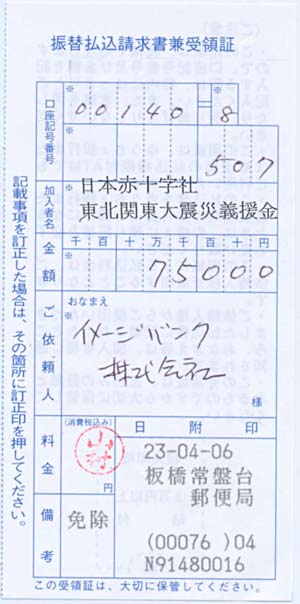 振替払込請求書兼受領証
口座記号番号
※
00140
※
8
※
507
加入者名
※
日本赤十字社
東北関東大震災義援金
金額
千百十万千百十円
※
75000
ご依頼人
おなまえ
※
イメージバンク
株式会社
様
料金
(消費税込み)
山村
円
日附印
23-04-06
板橋常盤台
郵便局
(00076 )04
N91480016
備考
免除
記載事項を訂正した場合は、その箇所に訂正印を押してください。
この受領証は、大切に保管してください。